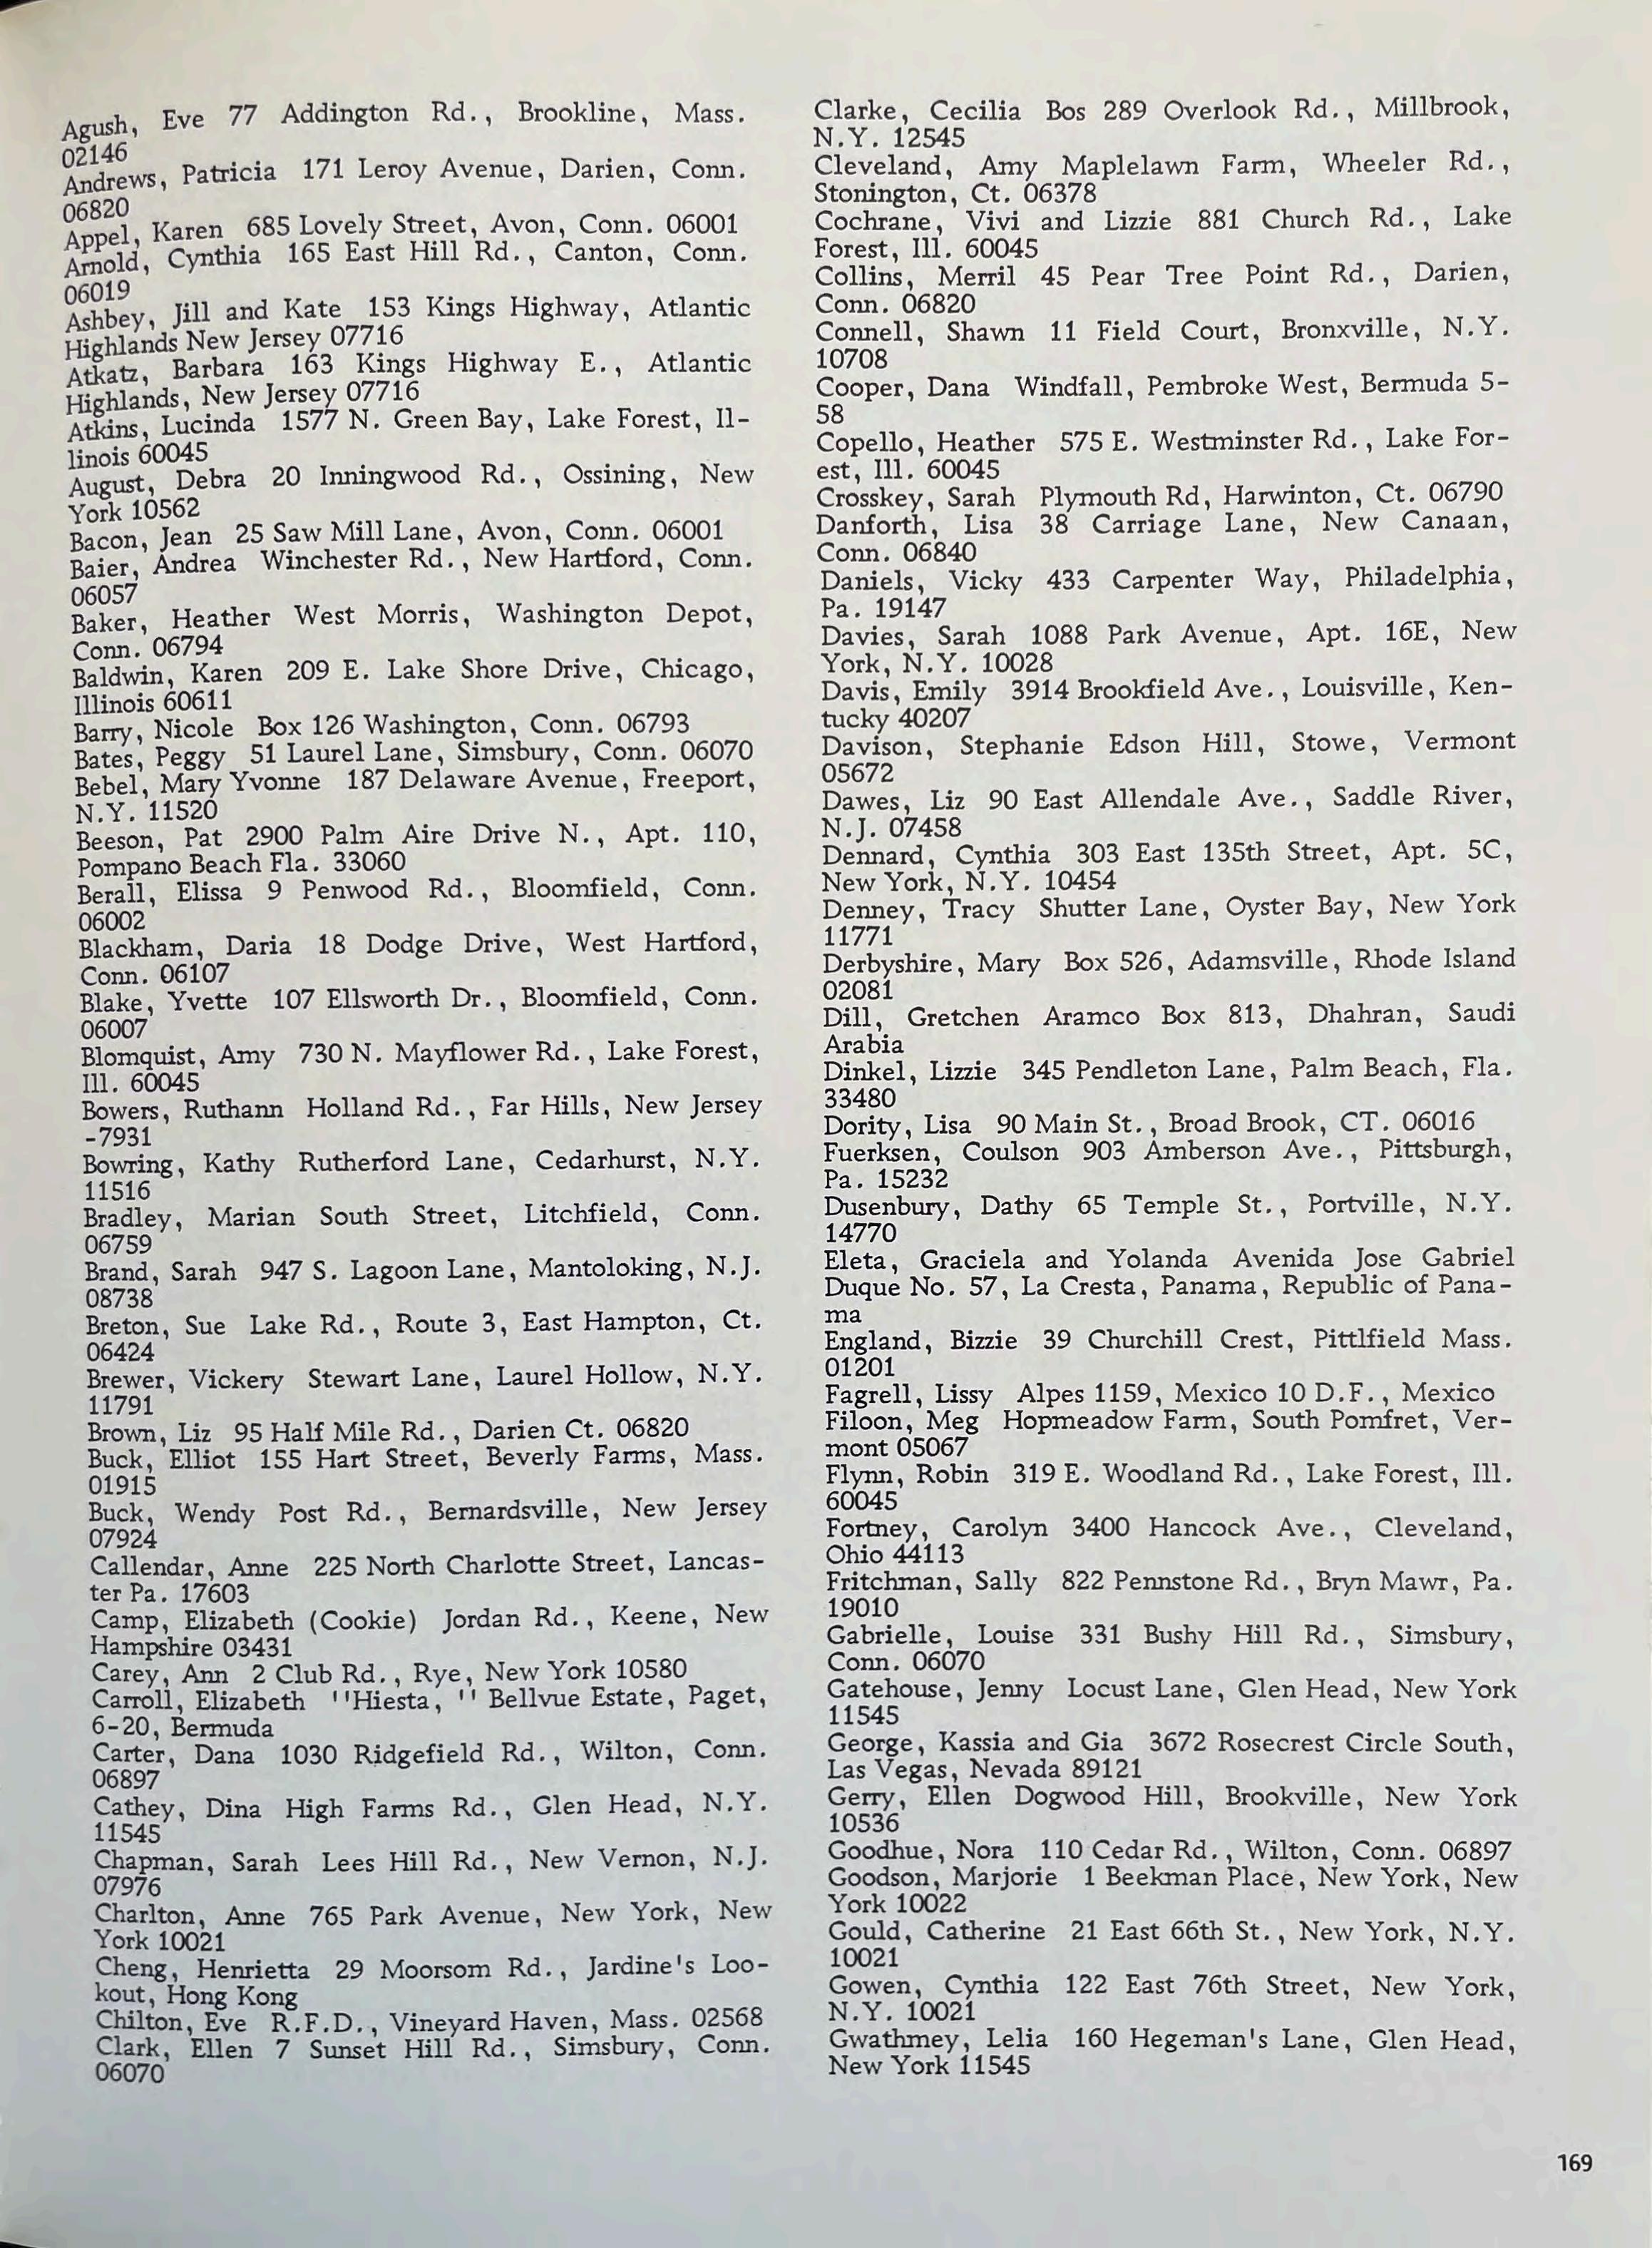 Agush, Eve 77 Addington Rd., Brookline, Mass.
02146
Andrews, Patricia 171 Leroy Avenue, Darien, Conn.
06820
Appel, Karen 685 Lovely Street, Avon, Conn. 06001
Arnold, Cynthia 165 East Hill Rd., Canton, Conn.
06019
Ashbey, Jill and Kate 153 Kings Highway, Atlantic
Highlands New Jersey 07716
Atkatz, Barbara 163 Kings Highway E., Atlantic
Highlands, New Jersey 07716
Atkins, Lucinda 1577 N. Green Bay, Lake Forest, Il-
linois 60045
August, Debra 20 Inningwood Rd., Ossining, New
York 10562
Bacon, Jean 25 Saw Mill Lane, Avon, Conn. 06001
Baier, Andrea Winchester Rd., New Hartford, Conn.
06057
Baker, Heather West Morris, Washington Depot,
Conn. 06794
Baldwin, Karen 209 E. Lake Shore Drive, Chicago,
Illinois 60611
Barry, Nicole Box 126 Washington, Conn. 06793
Bates, Peggy 51 Laurel Lane, Simsbury, Conn. 06070
Bebel, Mary Yvonne 187 Delaware Avenue, Freeport,
N.Y. 11520
Beeson, Pat 2900 Palm Aire Drive N., Apt. 110,
Pompano Beach Fla. 33060
Berall, Elissa 9 Penwood Rd., Bloomfield, Conn.
06002
Blackham, Daria 18 Dodge Drive, West Hartford,
Conn. 06107
Blake, Yvette 107 Ellsworth Dr., Bloomfield, Conn.
06007
Blomquist, Amy 730 N. Mayflower Rd., Lake Forest,
Ill. 60045
Bowers, Ruthann Holland Rd., Far Hills, New Jersey
-7931
Bowring, Kathy Rutherford Lane, Cedarhurst, N.Y.
11516
Bradley, Marian South Street, Litchfield, Conn.
06759
Brand, Sarah 947 S. Lagoon Lane, Mantoloking, N.J.
08738
Breton, Sue Lake Rd., Route 3, East Hampton, Ct.
06424
Brewer, Vickery Stewart Lane, Laurel Hollow, N.Y.
11791
Brown, Liz 95 Half Mile Rd., Darien Ct. 06820
Buck, Elliot 155 Hart Street, Beverly Farms, Mass.
01915
Buck, Wendy Post Rd., Bernardsville, New Jersey
07924
Callendar, Anne 225 North Charlotte Street, Lancas-
ter Pa. 17603
Camp, Elizabeth (Cookie) Jordan Rd., Keene, New
Hampshire 03431
Carey, Ann 2 Club Rd., Rye, New York 10580
Carroll, Elizabeth ''Hiesta, '' Bellvue Estate, Paget,
6-20, Bermuda
Carter, Dana 1030 Ridgefield Rd., Wilton, Conn.
06897
Cathey, Dina High Farms Rd., Glen Head, N.Y.
11545
Chapman, Sarah Lees Hill Rd., New Vernon, N.J.
07976
Charlton, Anne 765 Park Avenue, New York, New
York 10021
Cheng, Henrietta 29 Moorsom Rd., Jardine's Loo-
kout, Hong Kong
Chilton, Eve R.F.D., Vineyard Haven, Mass. 02568
Clark, Ellen 7 Sunset Hill Rd., Simsbury, Conn.
06070
Clarke, Cecilia Bos 289 Overlook Rd., Millbrook,
N.Y. 12545
Cleveland, Amy Maplelawn Farm, Wheeler Rd.,
Stonington, Ct. 06378
Cochrane, Vivi and Lizzie 881 Church Rd., Lake
Forest, Ill. 60045
Collins, Merril 45 Pear Tree Point Rd., Darien,
Conn. 06820
Connell, Shawn 11 Field Court, Bronxville, N.Y.
10708
Cooper, Dana Windfall, Pembroke West, Bermuda 5-
58
Copello, Heather 575 E. Westminster Rd., Lake For-
est, Ill. 60045
Crosskey, Sarah Plymouth Rd, Harwinton, Ct. 06790
Danforth, Lisa 38 Carriage Lane, New Canaan,
Conn. 06840
Daniels, Vicky 433 Carpenter Way, Philadelphia,
Pa. 19147
Davies, Sarah 1088 Park Avenue, Apt. 16E, New
York, N.Y. 10028
Davis, Emily 3914 Brookfield Ave., Louisville, Ken-
tucky 40207
Davison, Stephanie Edson Hill, Stowe, Vermont
05672
Dawes, Liz 90 East Allendale Ave., Saddle River,
N.J. 07458
Dennard, Cynthia 303 East 135th Street, Apt. 5C,
New York, N.Y. 10454
Denney, Tracy Shutter Lane, Oyster Bay, New York
11771
Derbyshire, Mary Box 526, Adamsville, Rhode Island
02081
Dill, Gretchen Aramco Box 813, Dhahran, Saudi
Arabia
Dinkel, Lizzie 345 Pendleton Lane, Palm Beach, Fla.
33480
Dority, Lisa 90 Main St., Broad Brook, CT. 06016
Fuerksen, Coulson 903 Amberson Ave., Pittsburgh,
Pa. 15232
Dusenbury, Dathy 65 Temple St., Portville, N.Y.
14770
Eleta, Graciela and Yolanda Avenida Jose Gabriel
Duque No. 57, La Cresta, Panama, Republic of Pana-
ma
England, Bizzie 39 Churchill Crest, Pittlfield Mass.
01201
Fagrell, Lissy Alpes 1159, Mexico 10 D.F., Mexico
Filoon, Meg Hopmeadow Farm, South Pomfret, Ver-
mont 05067
Flynn, Robin 319 E. Woodland Rd., Lake Forest, Ill.
60045
Fortney, Carolyn 3400 Hancock Ave., Cleveland,
Ohio 44113
Fritchman, Sally 822 Pennstone Rd., Bryn Mawr, Pa.
19010
Gabrielle, Louise 331 Bushy Hill Rd., Simsbury,
Conn. 06070
Gatehouse, Jenny Locust Lane, Glen Head, New York
11545
George, Kassia and Gia 3672 Rosecrest Circle South,
Las Vegas, Nevada 89121
Gerry, Ellen Dogwood Hill, Brookville, New York
10536
Goodhue, Nora 110 Cedar Rd., Wilton, Conn. 06897
Goodson, Marjorie 1 Beekman Place, New York, New
York 10022
Gould, Catherine 21 East 66th St., New York, N.Y.
10021
Gowen, Cynthia 122 East 76th Street, New York,
N.Y. 10021
Gwathmey, Lelia 160 Hegeman's Lane, Glen Head,
New York 11545
169